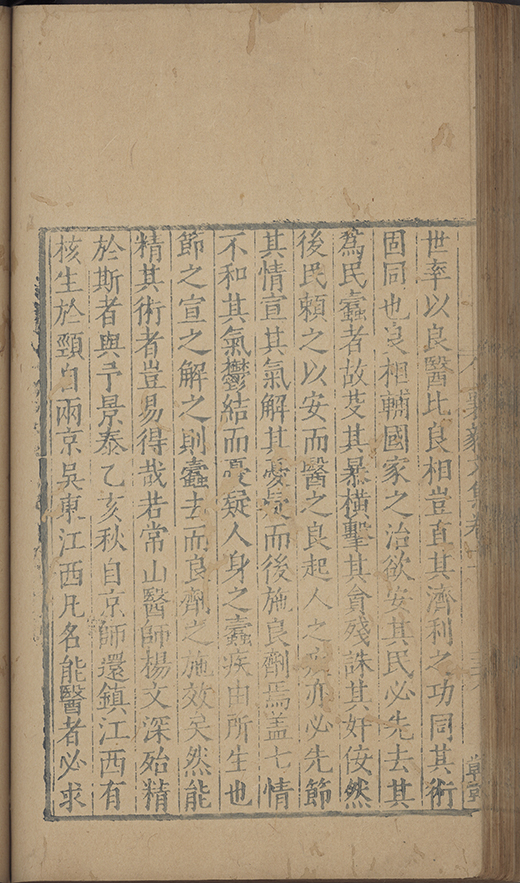 世率以良醫比良相豈直其濟利之功同其術
固同也良相輔國家之治欲安其民必先去其
為民蠹者故芟其暴橫擊其貪殘誅其奸佞然
後民頼之以安而醫之良起人之疾亦必先節
其情宣其氣解其憂疑而後施良劑焉盖七情
不和其氣鬱結而憂疑人身之蠹疾由所生也
節之宣之解之則蠹去而良劑之施效矣然能
精其術者豈易得哉若常山醫師楊文深殆精
於斯者與予景泰乙亥秋自京師還鎮江西有
核生於頸自兩京吳東江西凡名能醫者必求